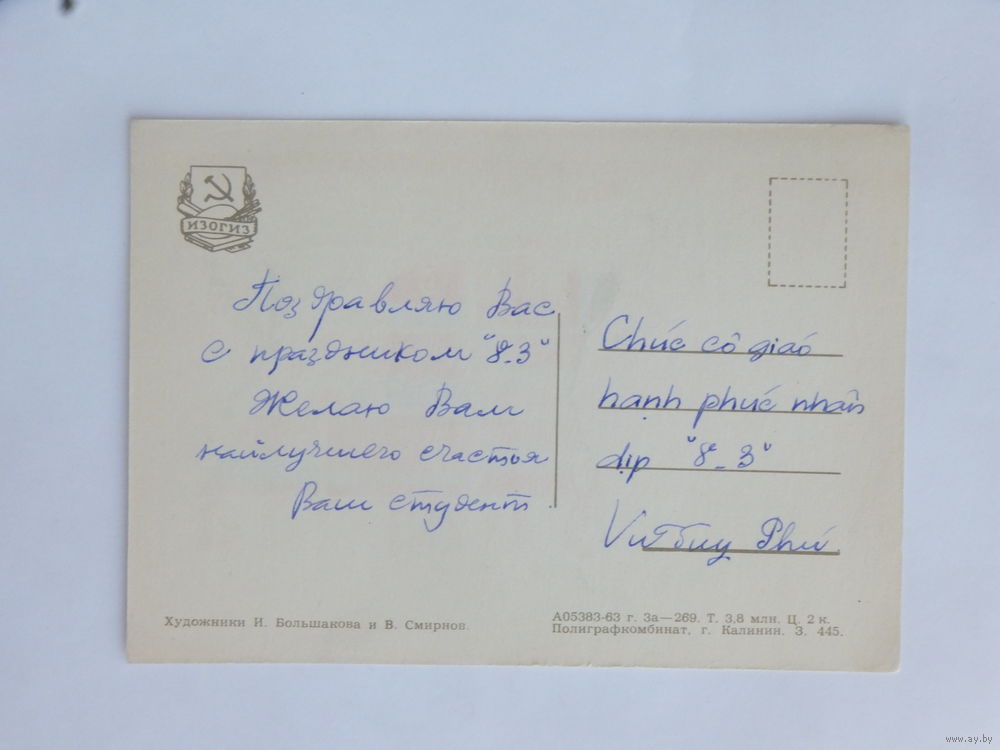 ИЗОГИЗ
Поздравляю Вас
с праздником "8-3"
Желаю Вам
найлучшего счастья
Ваш студент
Chúc cô giáo
hạnh phúc nhân
dịp "8-3"
Phú
Художники И. Большакова и В. Смирнов.
А05383-63 г. За—269. Т. 3,8 млн. Ц. 2 к.
Полиграфкомбинат, г. Калинин. З. 445.
www.ay.by